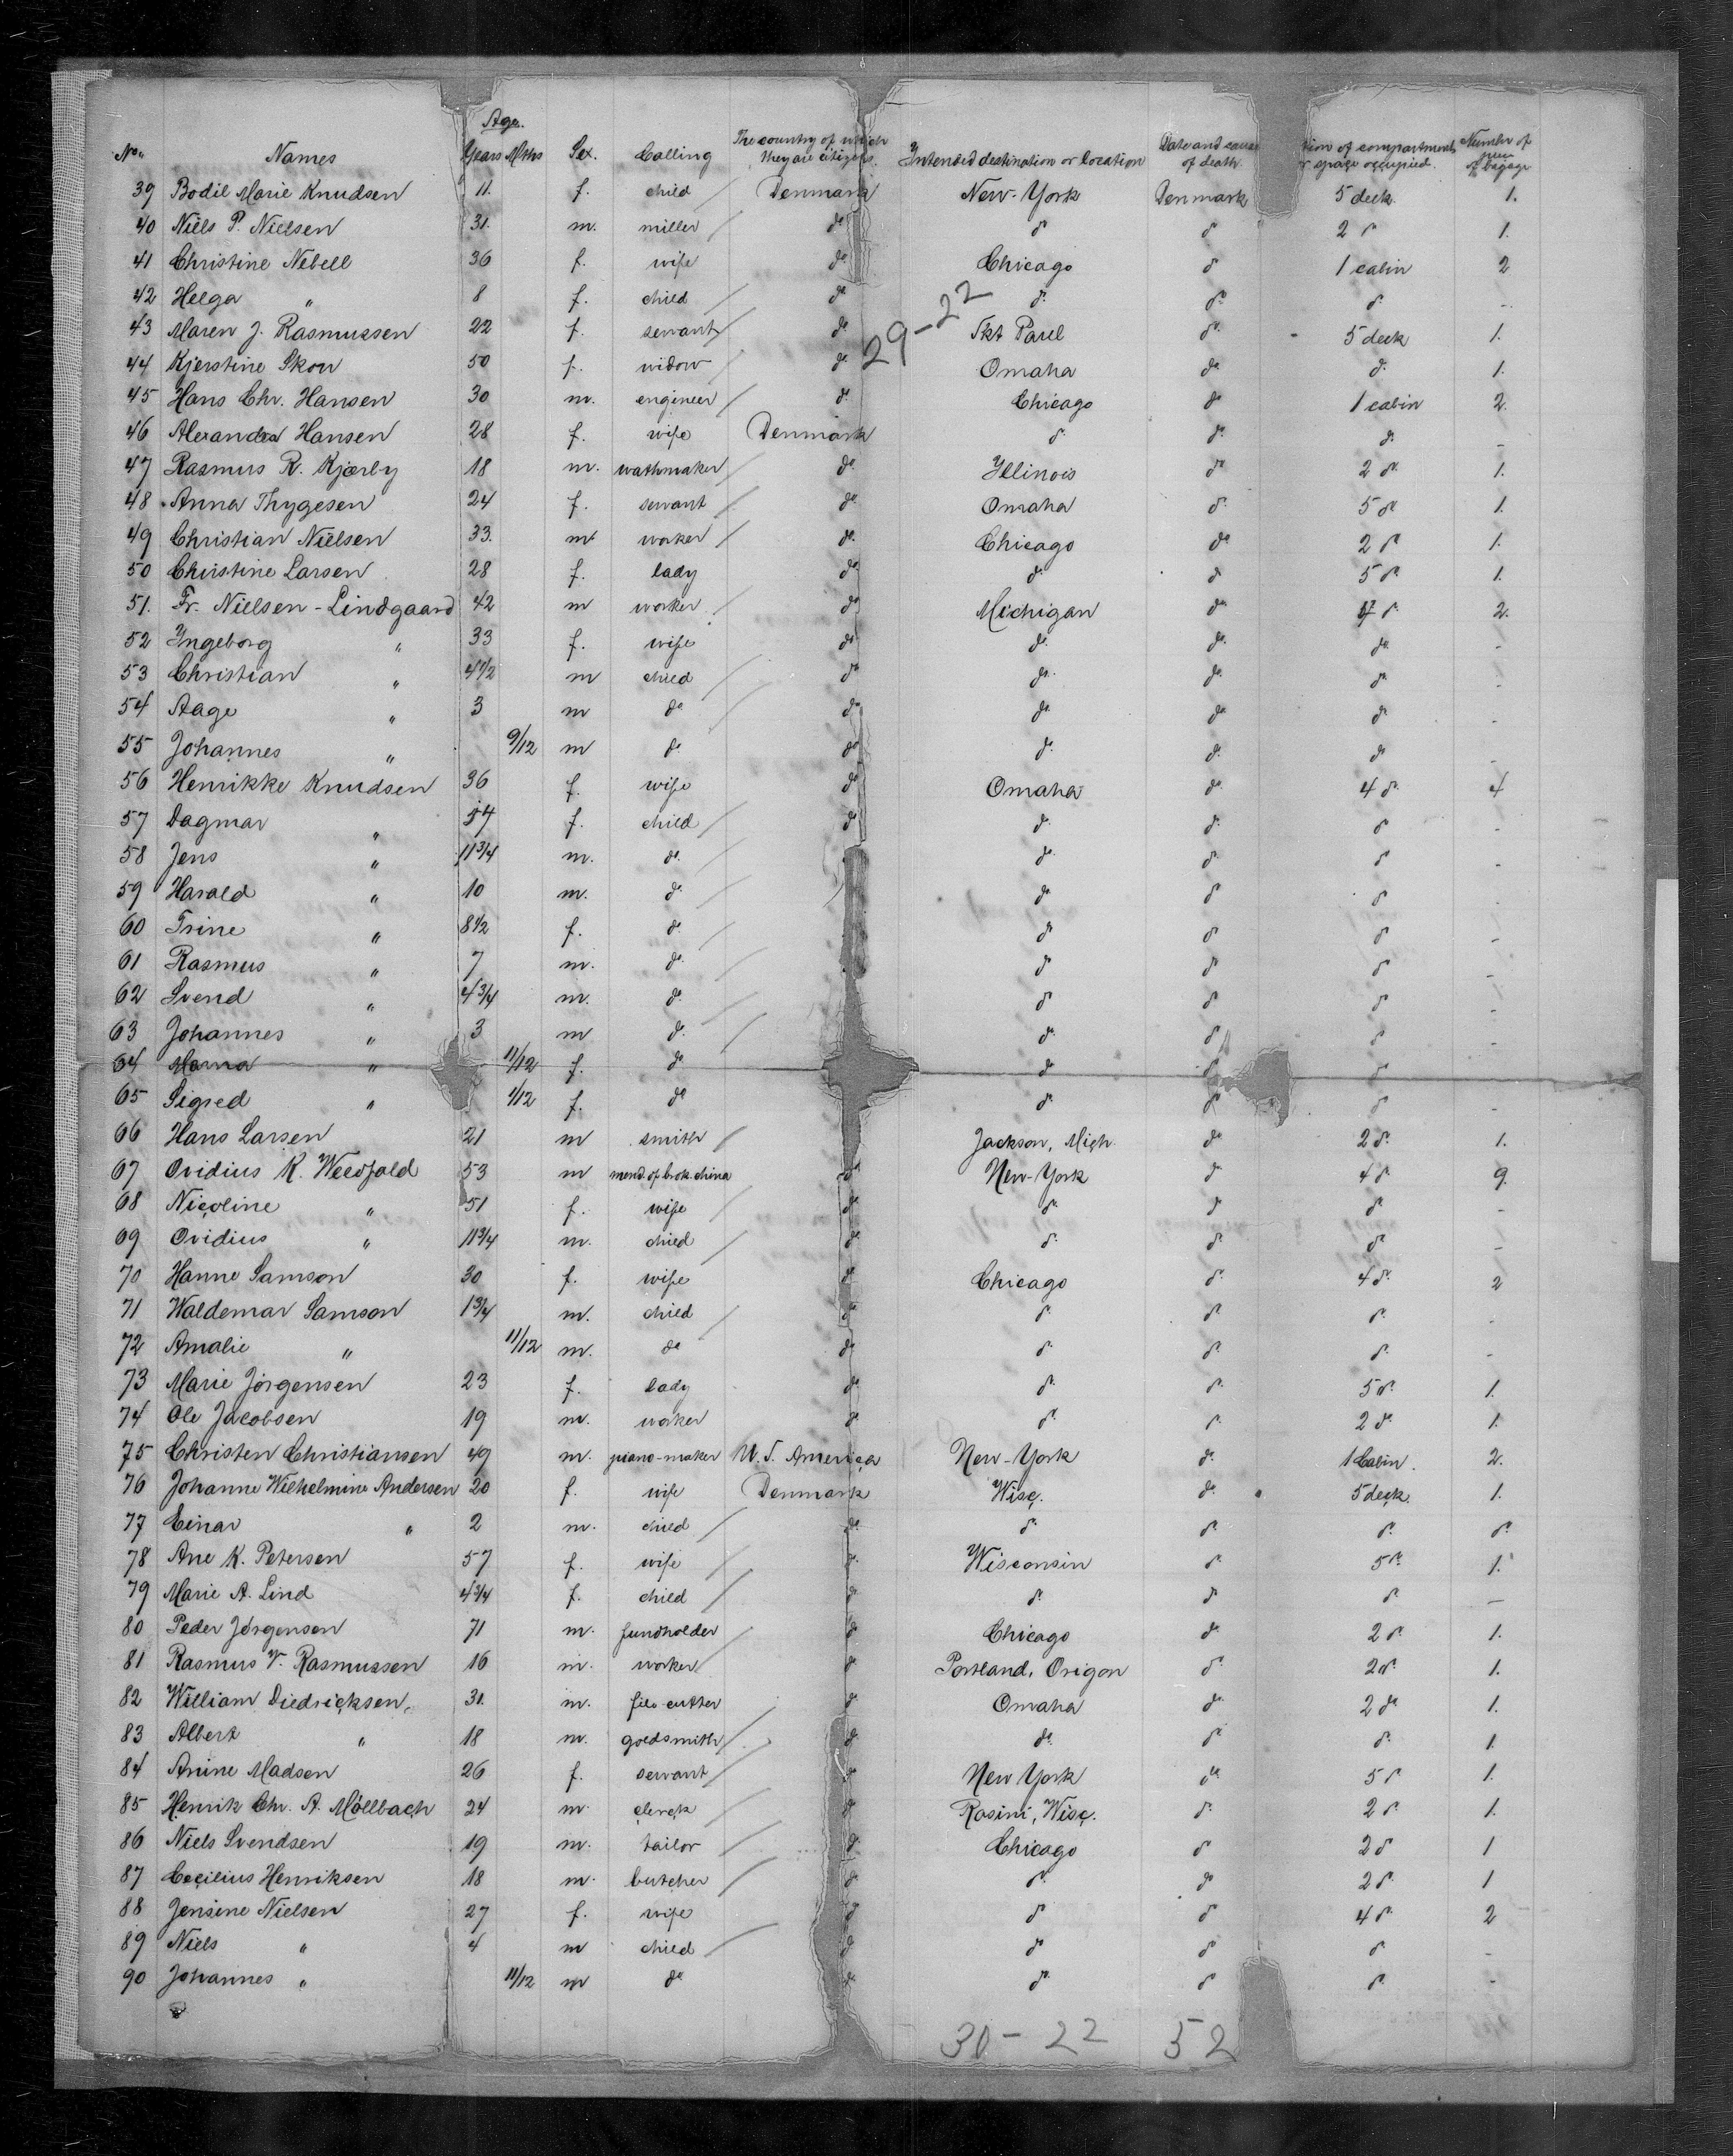 Age.
No. Names Years Mths Sex. Calling The country of which they are citizens. Intended destination or location Date and cause of death. tion of compartment or space occupied. Number of pieces of bagage
39 Bodil Marie Knudsen 11. f. child / Denmark New-York Denmark 5 deck. 1.
40 Niels P. Nielsen 31. m. miller / do do do 2 do 1.
41 Christine Nebell 36 f. wife do Chicago do 1 cabin 2
42 Helga " 8 f. child / do do. do. do -
29-22
43 Maren J. Rasmussen 22 f. servant / do Skt Paul do. 5 deck 1.
44 Kjerstine Skou 50 f. widow / do Omaha do. do. 1.
45 Hans Chr. Hansen 30 m. engineer / do Chicago do 1 cabin 2.
46 Alexandra Hansen 28 f. wife Denmark do. do. do. -
47 Rasmus R. Kjærby 18 m. wathmaker / do. Illinois do 2 do. 1.
48 Anna Thygesen 24 f. servant / do. Omaha do. 5 do 1.
49 Christian Nielsen 33. m worker / do. Chicago do 2 do 1.
50 Christine Larsen 28 f. lady do do. do 5 do. 1.
51. Fr. Nielsen-Lindgaard 42 m worker / do Michigan do. 17 do. 2.
52 Ingeborg " 33 f. wife do do. do. do. -
53 Christian " 4 1/2 m child / do do. do. do. -
54 Aage " 3 m do / do do. do. do -
55 Johannes " 9/12 m do do do. do. do -
56 Henrikke Knudsen 36 f. wife do Omaha do. 4 do. 4
57 Dagmar " 14 f. child / do do. do. do -
58 Jens " 11 3/4 m. do. / do. do. do -
59 Harald " 10 m. do / do do do -
60 Trine " 8 1/2 f. do / do do do -
61 Rasmus " 7 m. do. / do do do -
62 Svend " 4 3/4 m. do. / do do do -
63 Johannes " 3 m do. / do. do do -
64 Marna " 11/12 f. do do do do
65 Sigred " 1/12 f. do do. do do -
66 Hans Larsen 21 m smith / Jackson, Mich. do 2 do. 1.
67 Ovidius K. Weedfald 53 m mend. of brok. china do New-York do 4 do 9.
68 Nicoline " 51 f. wife / do do. do do. -
69 Ovidius " 11 3/4 m. child / do do. do do -
70 Hanne Samson 30 f. wife do Chicago do. 4 do. 2
71 Waldemar Samson 1 3/4 m. child / do do. do. do. -
72 Amalie " 11/12 m. do do do. do. do. -
73 Marie Jörgensen 23 f. lady do do. do. 5 do. 1.
74 Ole Jacobsen 19 m. worker do do. do. 2 do. 1.
75 Christen Christiansen 49 m. piano-maker U.S. America New-York do. 1 Cabin. 2.
76 Johanne Wilhelmine Andersen 20 f. wife Denmark Wisc. do. 5 deck. 1.
77 Einar " 2 m. child / do do. do. do. do.
78 Ane K. Petersen 57 f. wife / do Wisconsin do. 5 do. 1.
79 Marie A. Lind 4 3/4 f. child / do do. do do. -
80 Peder Jörgensen 71 m. fundholder / do Chicago do. 2 do. 1.
81 Rasmus V. Rasmussen 16 m. worker / do Portland, Origon do. 2 do. 1.
82 William Diedricksen. 31. m. file-cutter do Omaha do. 2 do 1.
83 Albert " 18 m. goldsmith / do do. do. do. 1
84 Anine Madsen 26 f. servant / do New York do. 5 do 1.
85 Henrik Chr. A. Möllbach 24 m. clerck / do Rasini, Wisc. do. 2 do. 1.
86 Niels Svendsen 19 m. tailor / do Chicago do 2 do 1
87 Cecilius Henriksen 18 m. butcher / do do. do 2 do. 1
88 Jensine Nielsen 27 f. wife do do do 4 do. 2
89 Niels " 4 m child / do do do do -
90 Johannes " 11/12 m do do do. do do. -
30-22 52